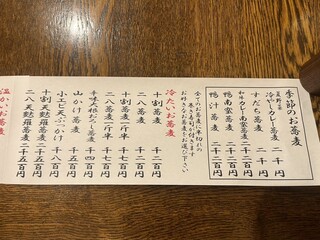 季節のお蕎麦
冷やしカレー蕎麦 二千円
すだち蕎麦 二千円
和牛カレー南蛮蕎麦 二千二百円
鴨南蛮蕎麦 二千二百円
鴨汁蕎麦 二千二百円
全てのお蕎麦に半切れの
巻き寿司が付きます
お好きなお蕎麦をお選び下さい
冷たいお蕎麦
十割蕎麦 千二百円
二八蕎麦 千二百円
十割蕎麦一斤半 千七百円
二八蕎麦一斤半 千七百円
辛味大根おろし蕎麦 千四百円
山かけ蕎麦 千六百円
小エビ天ぶっかけ 千八百円
十割天麩羅蕎麦 二千五百円
二八天麩羅蕎麦 二千五百円
温かいお蕎麦